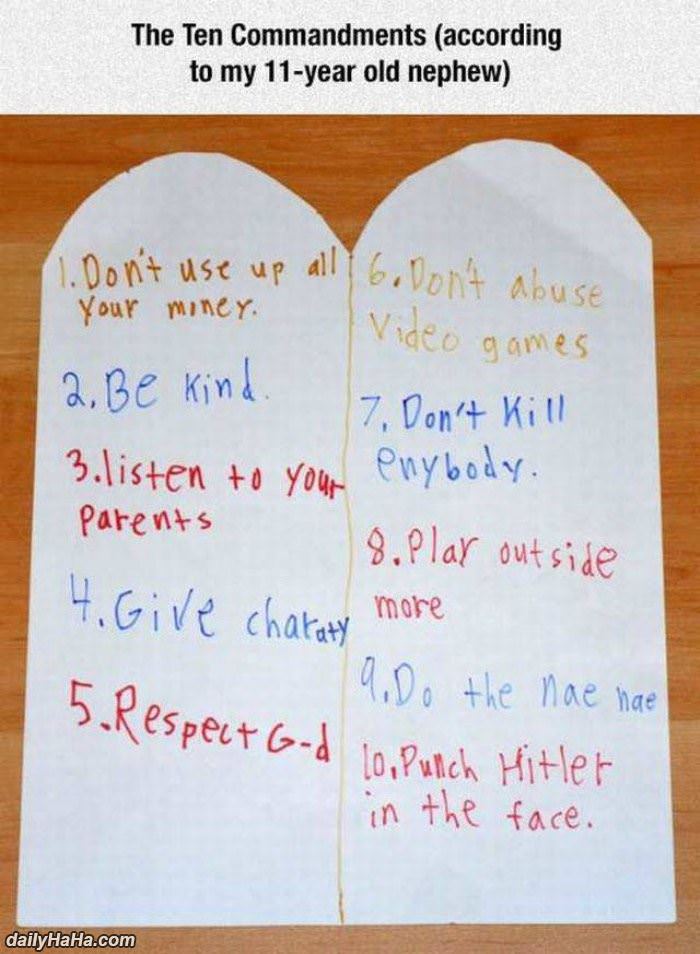 The Ten Commandments (according
to my 11-year old nephew)
1. Don't use up all
Your miney.
2. Be Kind.
3. listen to your
Parents
4. Give charaty
5. Respect G-d
6. Don't abuse
Video games
7. Don't Kill
enybody.
8. Play outside
more
9. Do the nae nae
10. Punch Hitler
in the face.
dailyHaHa.com